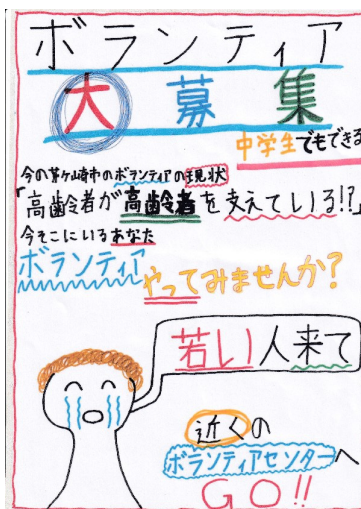 ボランティア
大募集
中学生でもできる
今の茅ヶ崎市のボランティアの現状
「高齢者が高齢者を支えている!?」
今そこにいるあなた
ボランティア
やってみませんか?
若い人来て
近くの
ボランティアセンターへ
GO!!